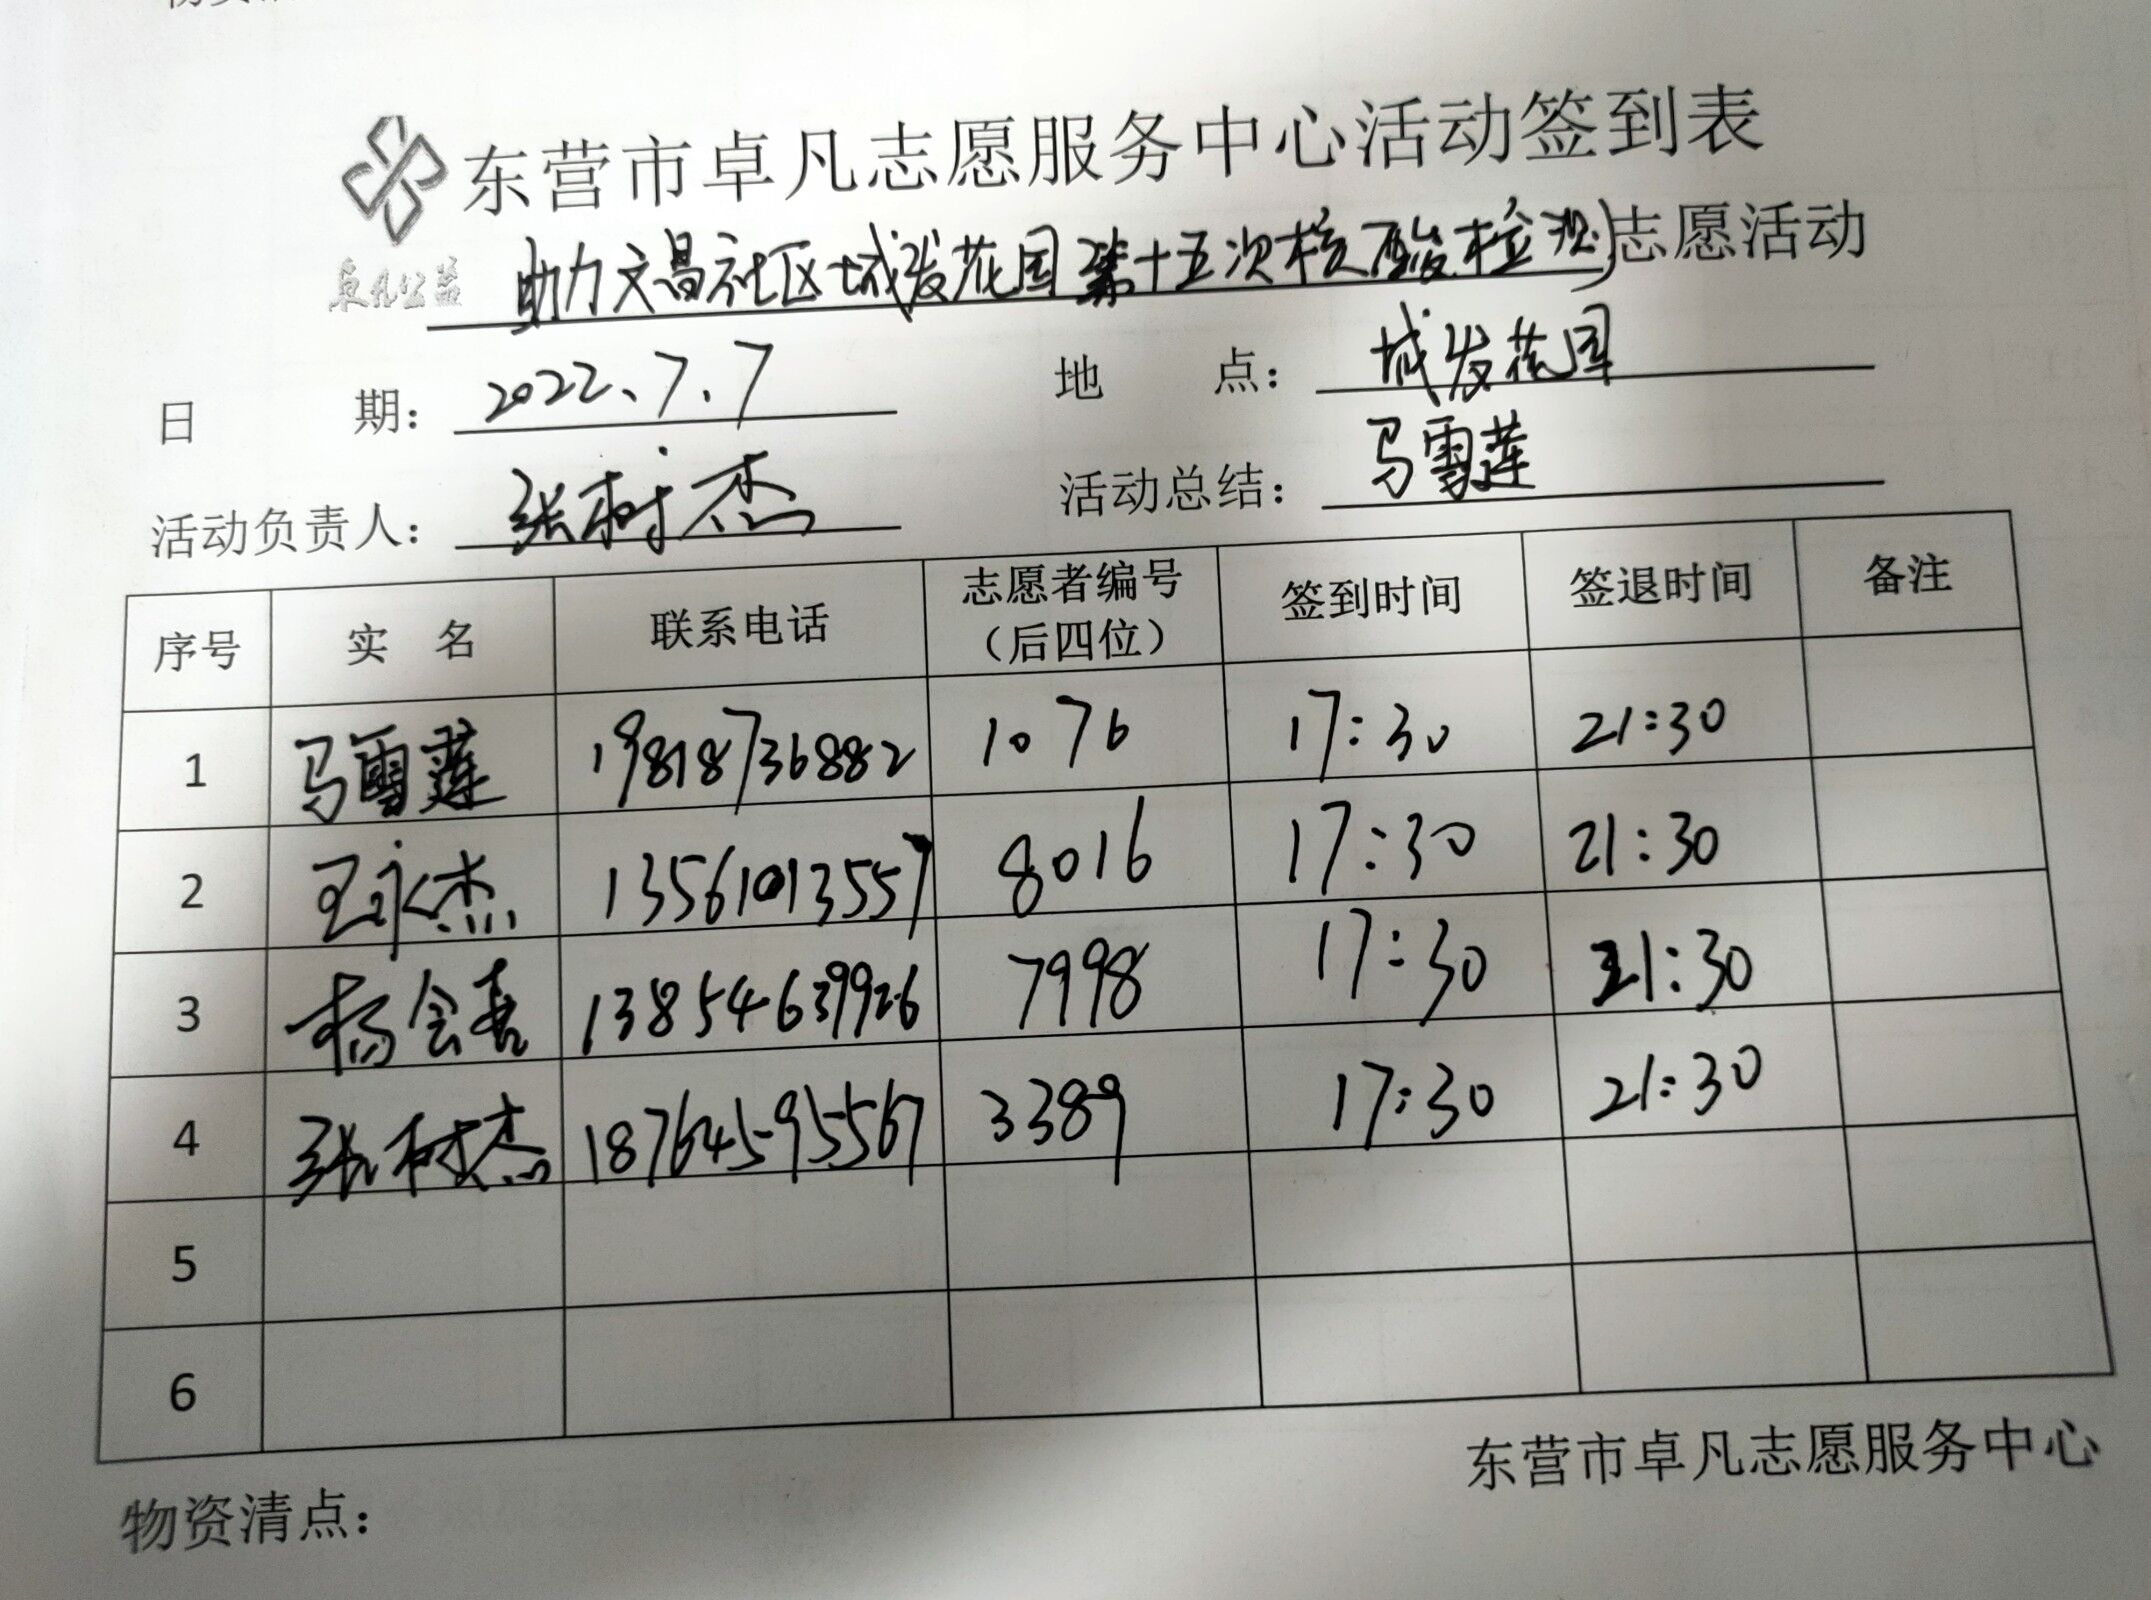 东营市卓凡志愿服务中心活动签到表
卓凡公益
助力文昌社区城发花园第十五次核酸检测志愿活动
日 期: 2022.7.7 地 点: 城发花园
活动负责人: 张树杰 活动总结: 马雪莲
序号 实 名 联系电话 志愿者编号(后四位) 签到时间 签退时间 备注
1 马雪莲 19818736882 1076 17:30 21:30
2 王永杰 13561013557 8016 17:30 21:30
3 杨会喜 13854639926 7998 17:30 21:30
4 张树杰 18764595567 3389 17:30 21:30
5
6
东营市卓凡志愿服务中心
物资清点: